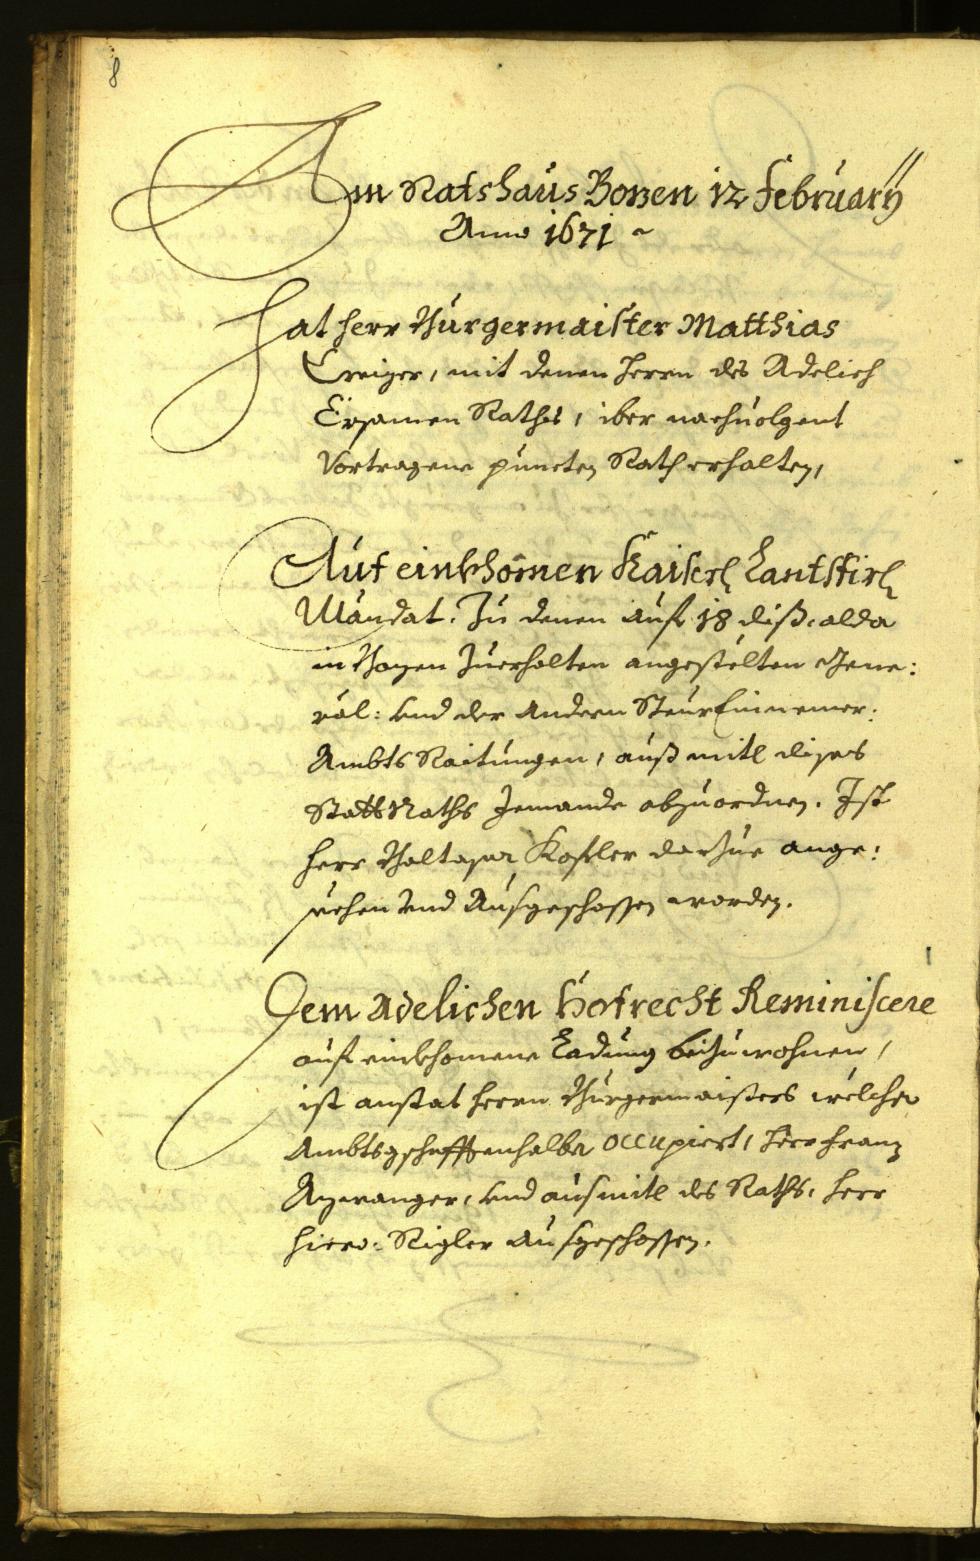 8
Am Ratshaus Bozen 12 February
Anno 1671
Hat herr Burgermaister Matthias
mit denen herrn des Adelich
Ersamen Raths, iber nachuolgent
Vortragene puncten Rath erhalten,
Auf einkhomen Kaiserl Lantsfürl
Mandat. Zu denen auf 18 diß. alda
in Bozen Zuerhalten angestelten Gene:
ral: und der Andern SteurEinnemer:
Ambts Raitungen, auß mitl dises
Statt Raths Jemande abzuordnen. Ist
herr Balthasar darzue ange:
sechen und Aufgeschossen worden.
Dem Adelichen Hofrecht Reminiscere
auf einkhomene Ladung beizuwohnen,
ist anstat herrn Burgermaisters welcher
Ambtsgschefftenhalber occupiert, herr Franz
und aus mitl des Raths, herr
hiero: Rigler Aufgeschossen.